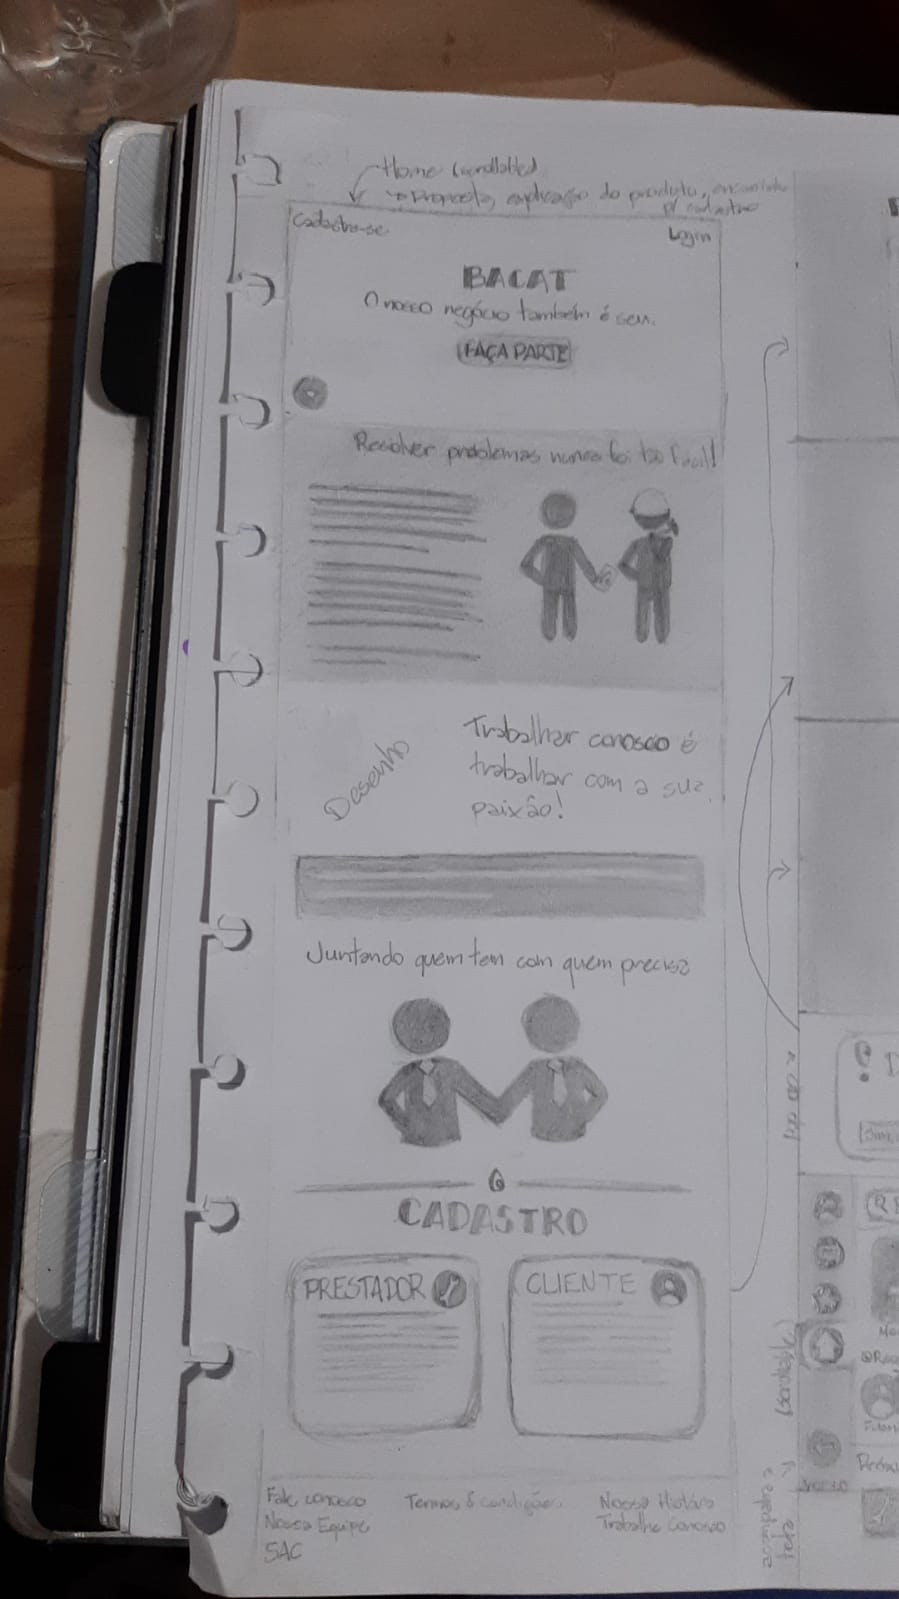 Home (scrollable)
→ Proposta, explicação do produto, encaminha
p/ cadastro
Cadastre-se
Login
BACAT
O nosso negócio também é seu.
FAÇA PARTE
Resolver problemas nunca foi tão fácil!
Desenho
Trabalhar conosco é
trabalhar com a sua
paixão!
Juntando quem tem com quem precisa
CADASTRO
PRESTADOR
CLIENTE
Fale conosco
Nossa Equipe
SAC
Termos & condições
Nossa História
Trabalhe Conosco